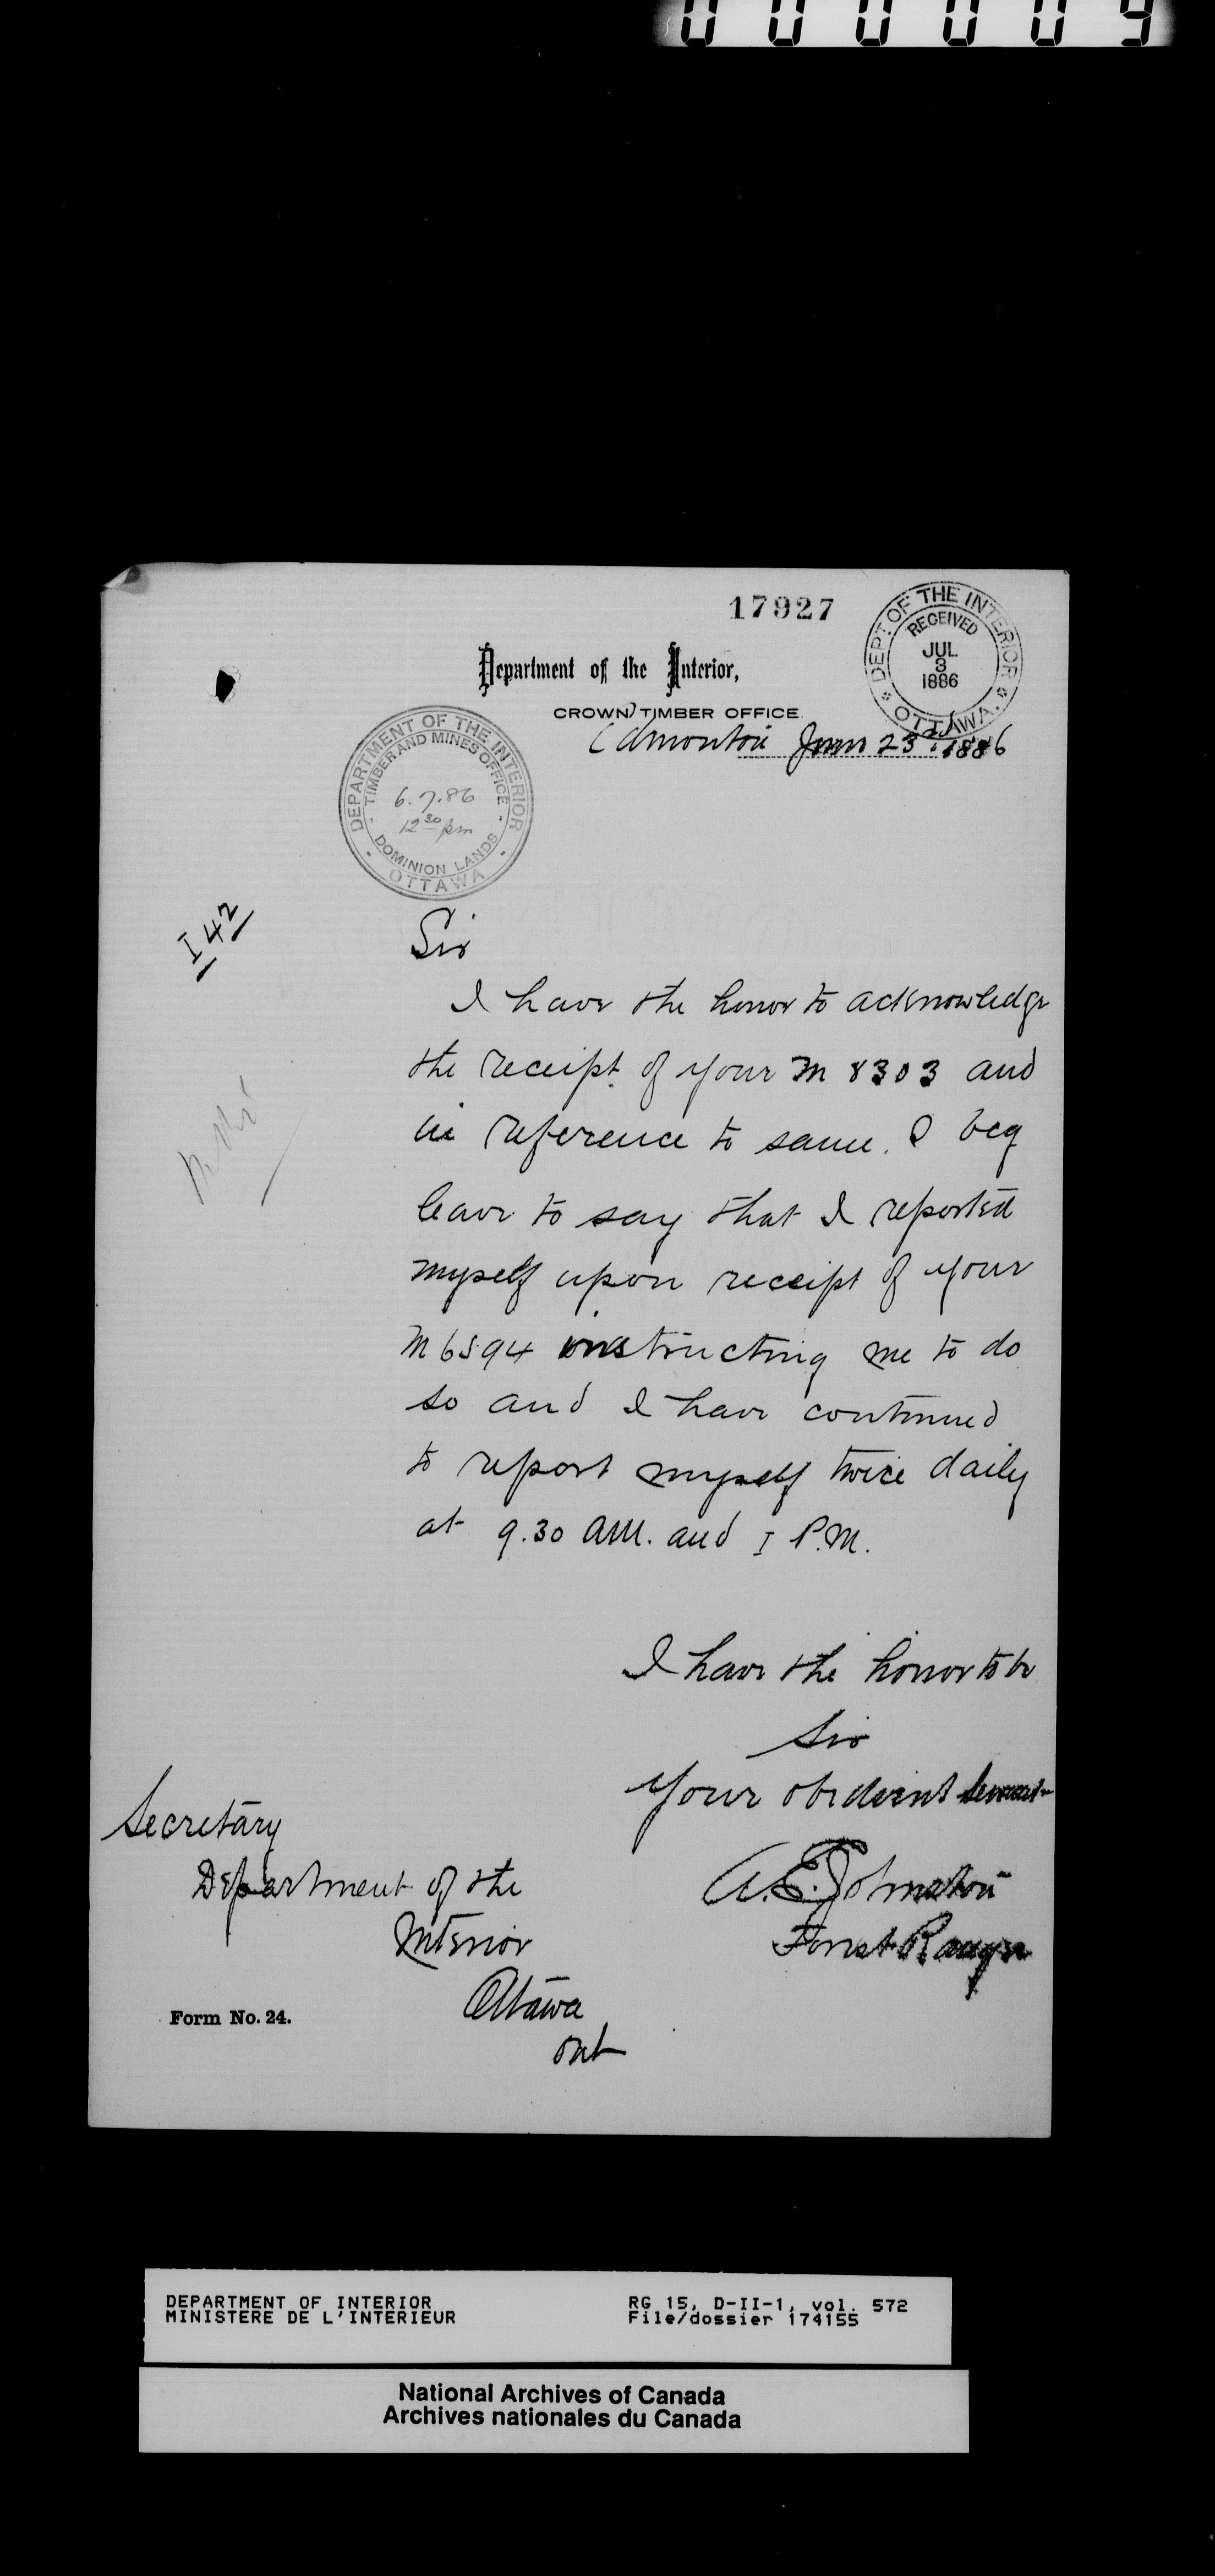 000009
17927
DEPT OF THE INTERIOR
RECEIVED
JUL
3
1886
OTTAWA.
Department of the Interior,
CROWN TIMBER OFFICE.
Edmonton June 23rd 1886
DEPARTMENT OF THE INTERIOR
TIMBER AND MINES OFFICE
6.7.86
12 30 pm
DOMINION LANDS
OTTAWA
I 42
Sir
I have the honor to acknowledge
the receipt of your M 8303 and
in reference to same. I beg
leave to say that I reported
myself upon receipt of your
M 6594 instructing me to do
so and I have continued
to report myself twice daily
at 9.30 AM. and I P.M.
I have the honor to be
Sir
Your obedient Servant
A. E. Johnston
Forest Ranger
Secretary
Department of the
Interior
Ottawa
Ont
Form No. 24.
DEPARTMENT OF INTERIOR
MINISTERE DE L'INTERIEUR
RG 15, D-II-1, vol. 572
File/dossier 174155
National Archives of Canada
Archives nationales du Canada